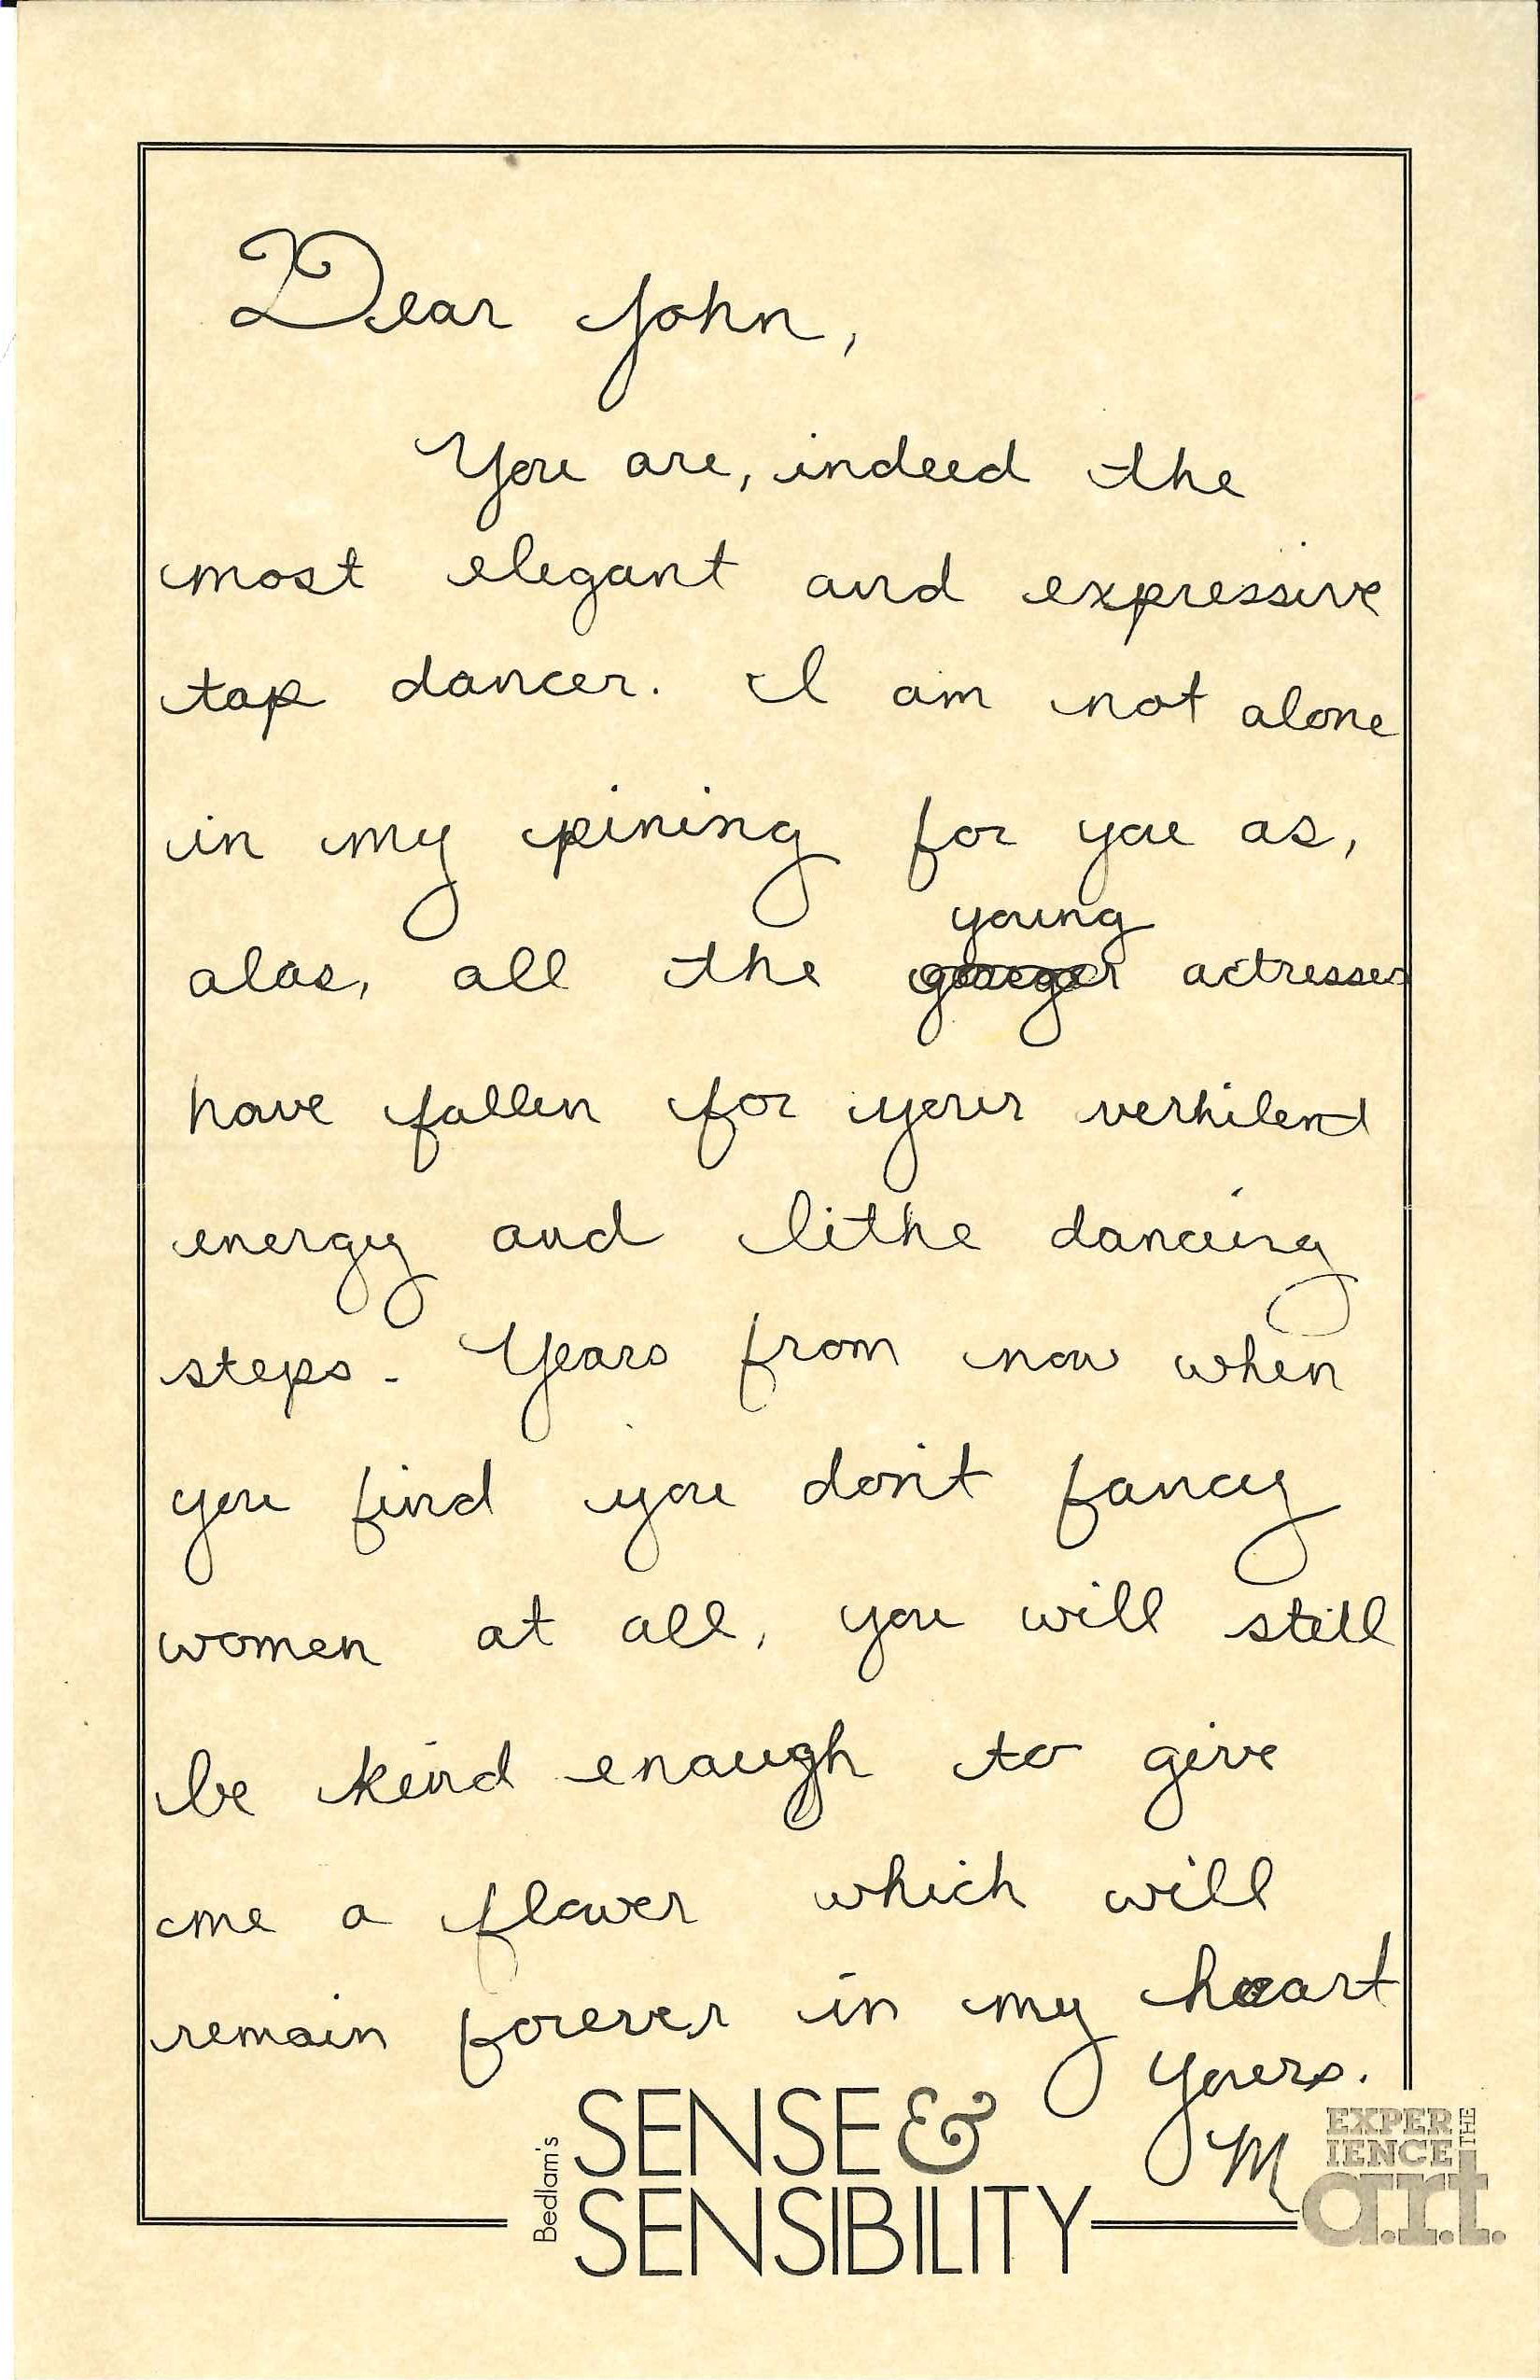 Dear John,
You are, indeed the
most elegant and expressive
tap dancer. I am not alone
in my pining for you as,
young
alas, all the actresses
have fallen for your verhilent
energy and lithe dancing
steps. Years from now when
you find you don't fancy
women at all, you will still
be kind enough to give
me a flower which will
remain forever in my heart
yours.
M
Bedlam's
SENSE &
SENSIBILITY
EXPERIENCE THE
a.r.t.